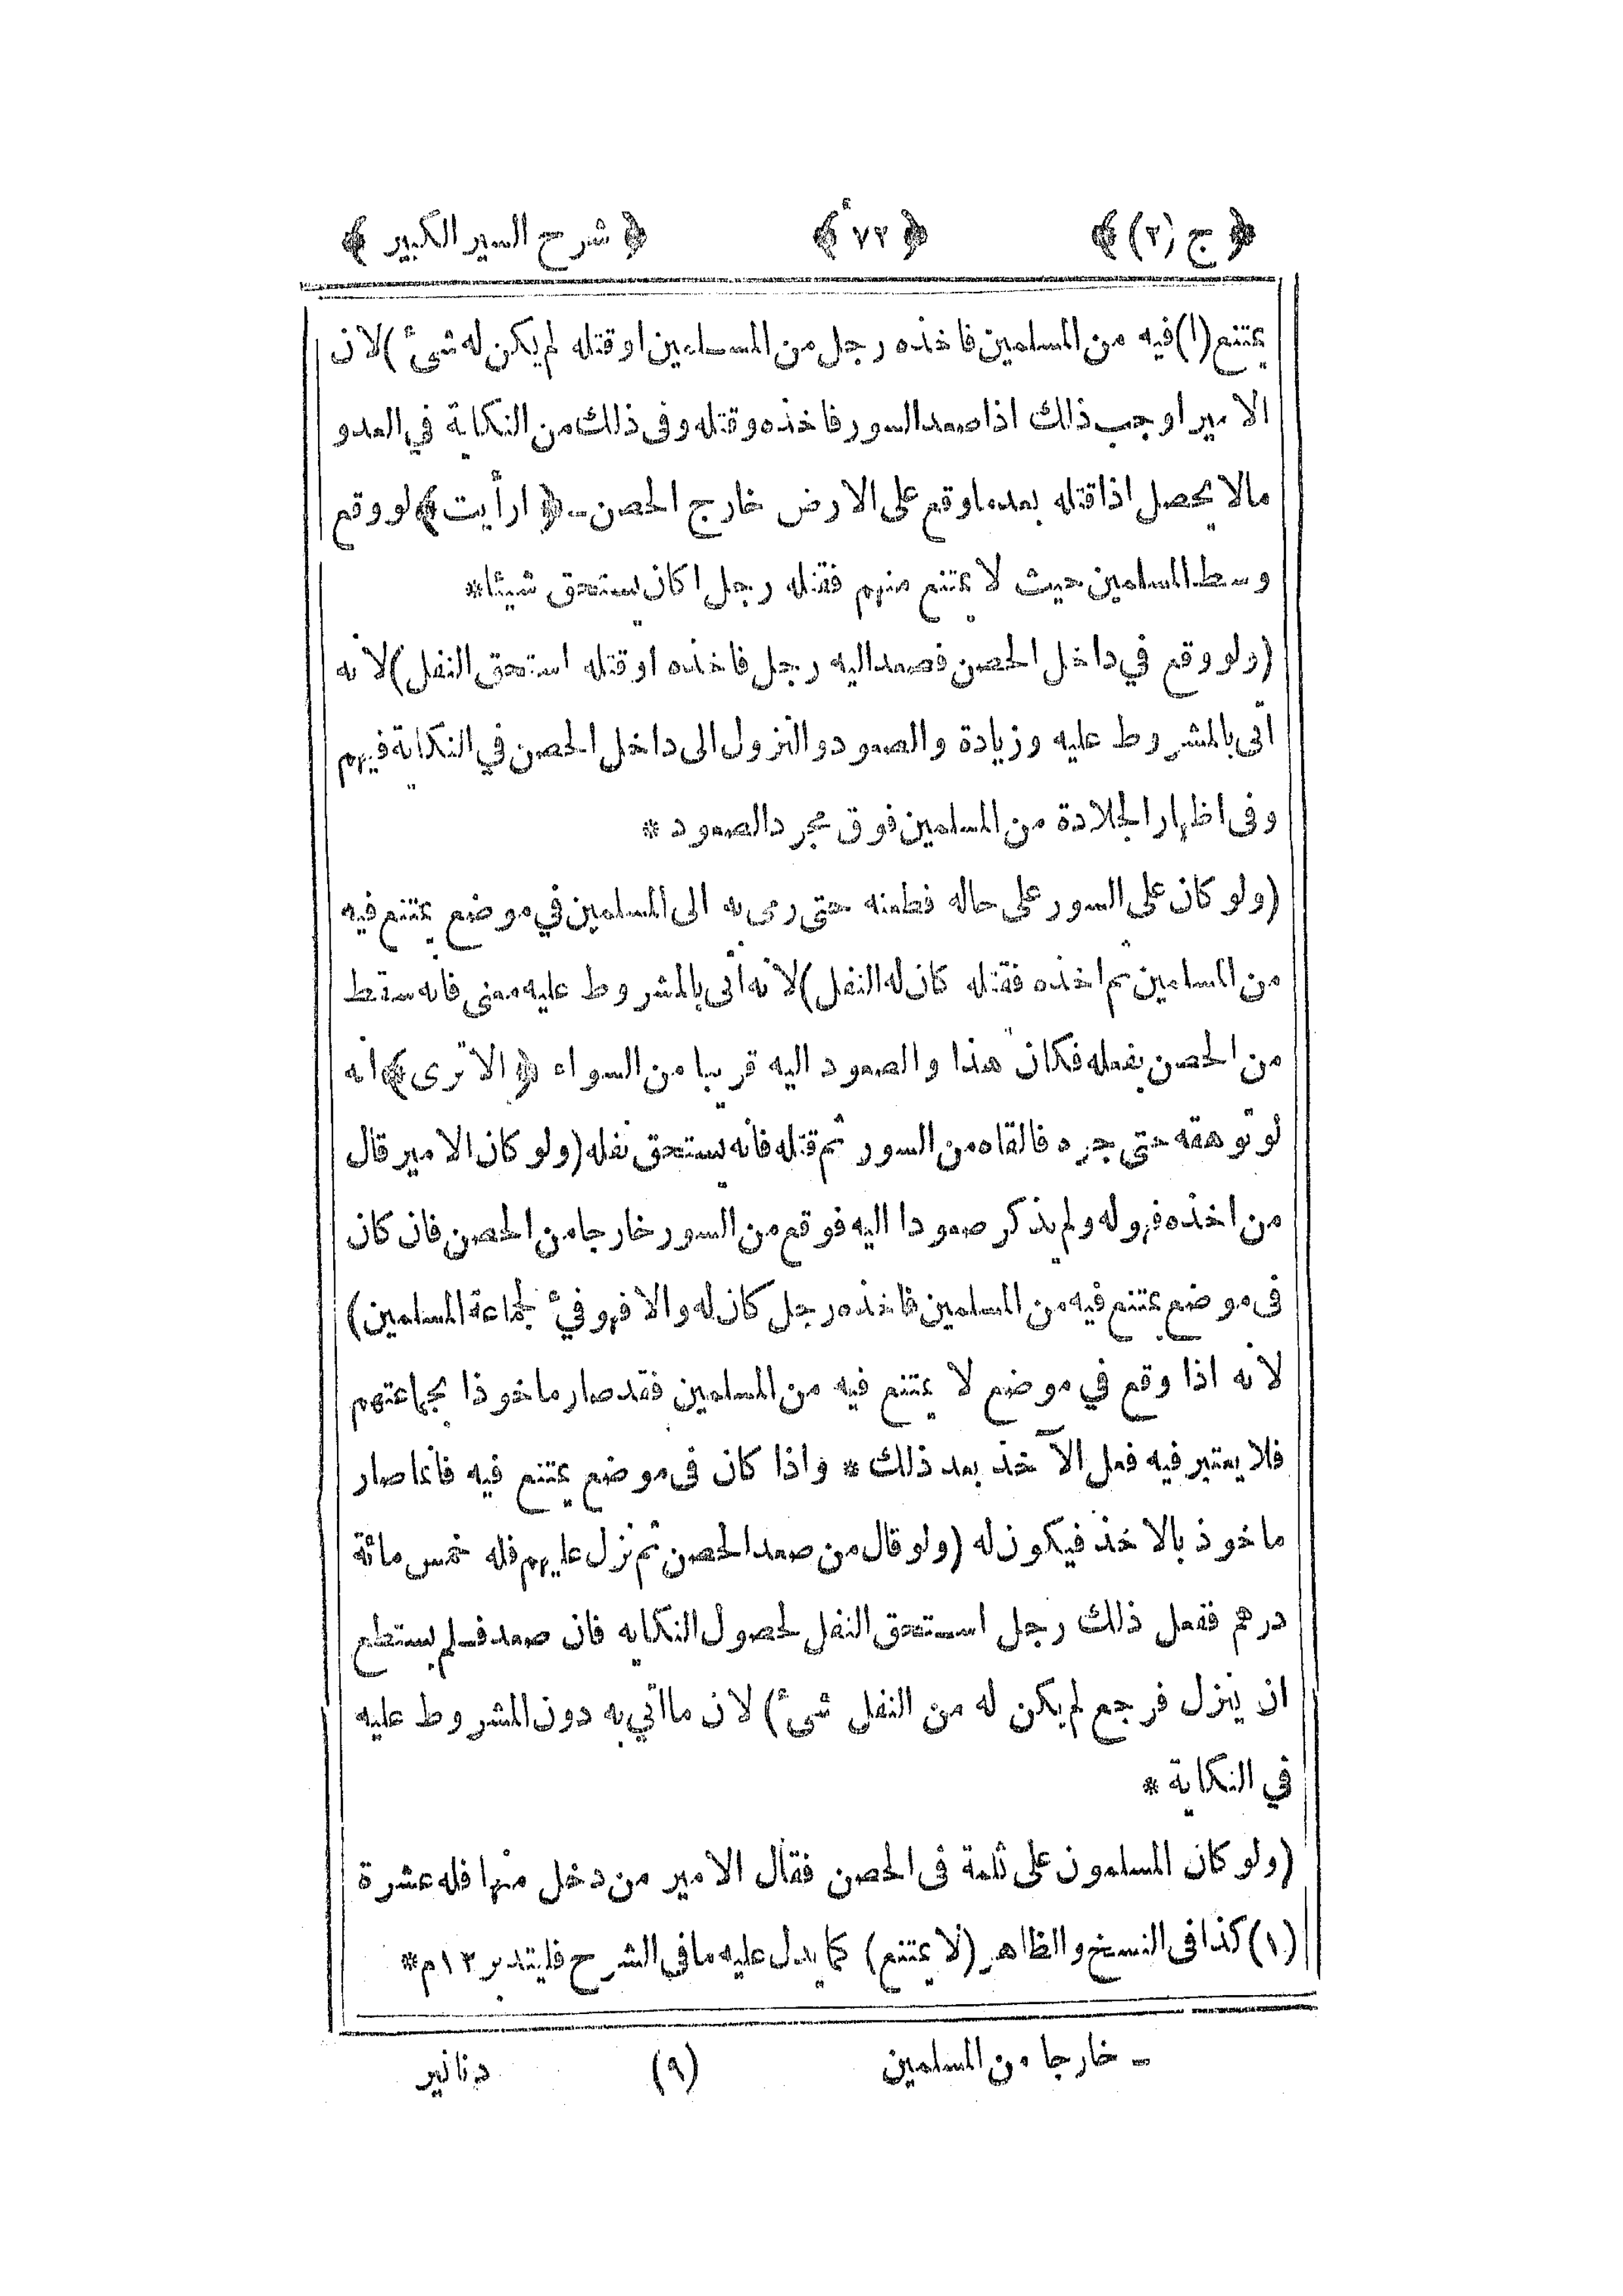 ﴿ ج (٢) ﴾ ﴿ ٧٢ ﴾ ﴿ شرح السير الكبير ﴾
يمتنع (١) فيه من المسلمين فاخذه رجل من المسلمين او قتله لم يكن له شئ) لان
الامير اوجب ذلك اذا صعد السور فاخذه وقتله وفى ذلك من النكاية في العدو
مالا يحصل اذا قتله بعد ما وقع على الارض خارج الحصن ـ ﴿ ارأيت ﴾ لو وقع
وسط المسلمين حيث لا يمتنع منهم فقتله رجل اكان يستحق شيئا *
(ولو وقع في داخل الحصن فصعد اليه رجل فاخذه او قتله استحق النفل) لانه
أتى بالمشروط عليه وزيادة والصعود والنزول الى داخل الحصن في النكاية فيهم
وفى اظهار الجلادة من المسلمين فوق مجرد الصعود *
(ولو كان على السور على حاله فطعنه حتى رمى به الى المسلمين في موضع يمتنع فيه
من المسلمين ثم اخذه فقتله كان له النفل) لانه أتى بالمشروط عليه معنى فانه سقط
من الحصن بفعله فكان هذا والصعود اليه قريبا من السواء ﴿ الا ترى ﴾ انه
لو توهقه حتى جره فالقاه من السور ثم قتله فانه يستحق نفله (ولو كان الامير قال
من اخذه فهو له ولم يذكر صعودا اليه فوقع من السور خارجا من الحصن فان كان
فى موضع يمتنع فيه من المسلمين فاخذه رجل كان له والا فهو فيئ لجماعة المسلمين)
لانه اذا وقع في موضع لا يمتنع فيه من المسلمين فقد صار ماخوذا بجماعتهم
فلا يعتبر فيه فعل الآخذ بعد ذلك * واذا كان فى موضع يمتنع فيه فانما صار
ماخوذ بالاخذ فيكون له (ولو قال من صعد الحصن ثم نزل عليهم فله خمس مائة
درهم ففعل ذلك رجل استحق النفل لحصول النكايه فان صعد فلم يستطع
ان ينزل فرجع لم يكن له من النفل شئ) لان ما اتي به دون المشروط عليه
في النكاية *
(ولو كان المسلمون على ثلمة فى الحصن فقال الامير من دخل منها فله عشرة
(١) كذا فى النسخ والظاهر (لا يمتنع) كما يدل عليه ما فى الشرح فليتدبر ١٢ م *
ـ خارجا من المسلمين (٩) دنانير